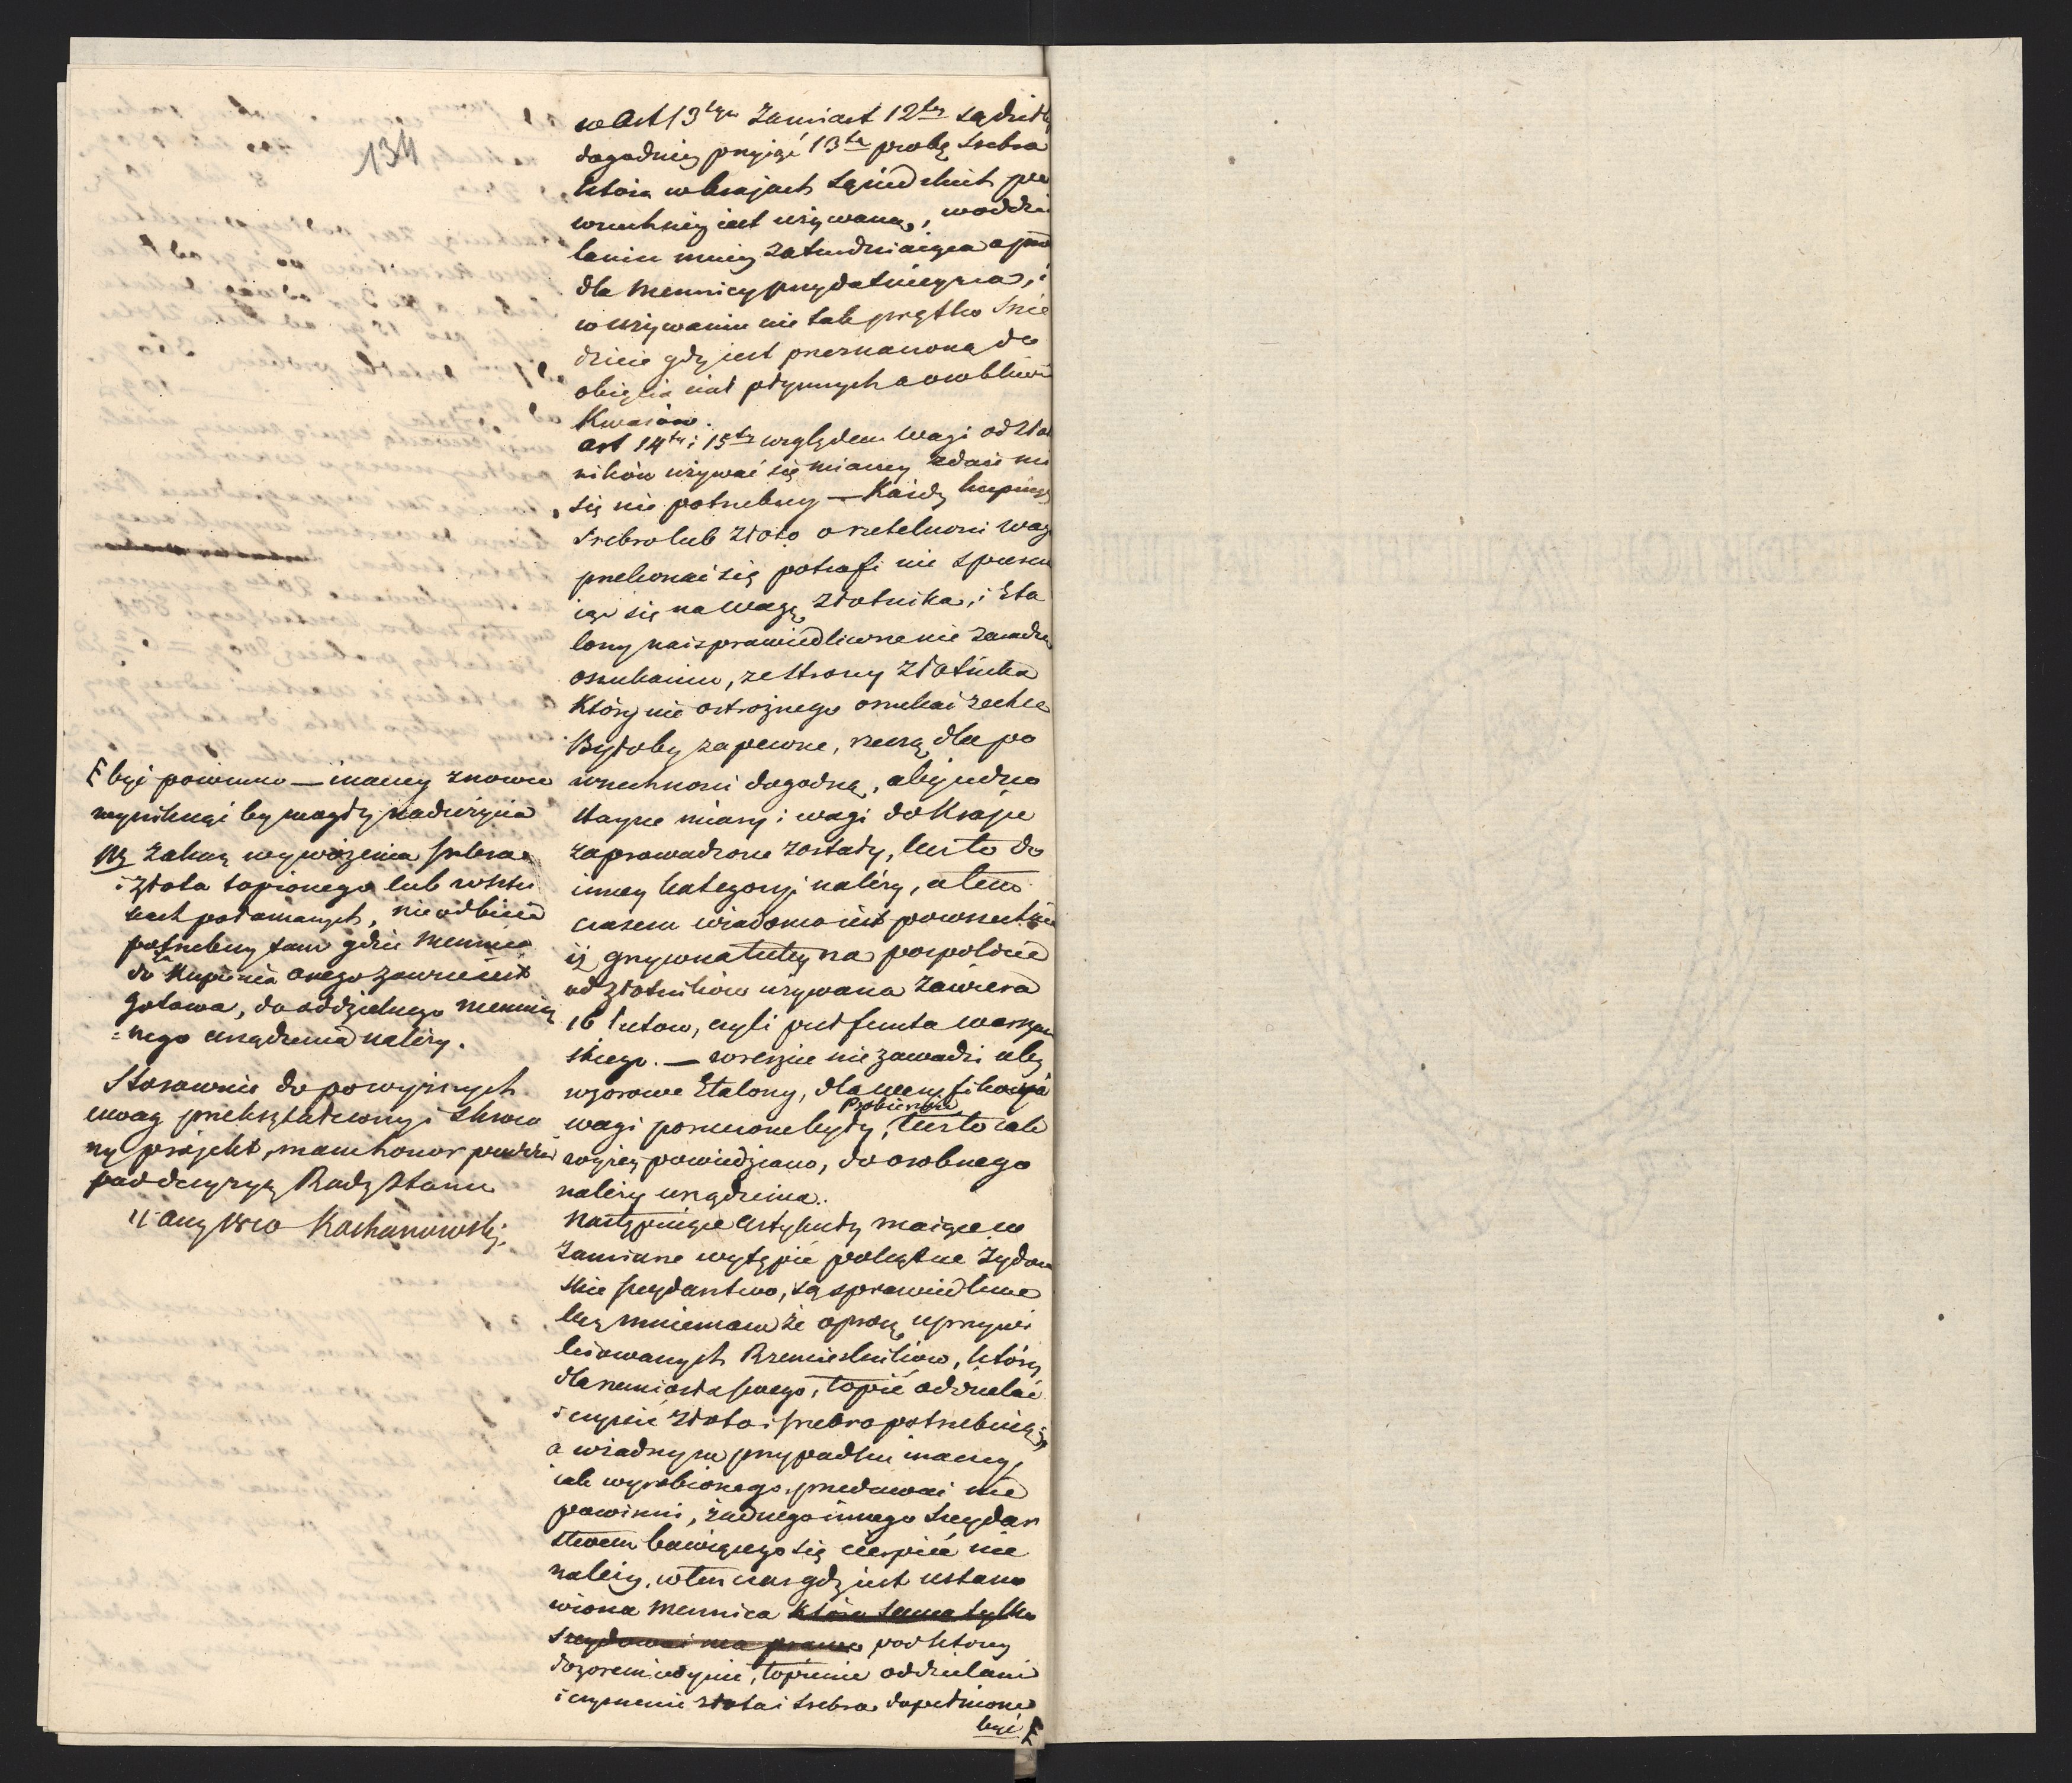 134
w Art 13tym zamiast 12tey sądził by
dogodniey przyiąć 13tą probę srebra
która w krajach sąsiedzkich po
wszechniey iest używaną, w oddzie
laniu mniey zatrudniaiąca a
dla Mennicy przydatnieysza, i
w używaniu nie tak prętko śnie
dzieie gdy iest przeznaczoną do
obięcia ciał płynnych a osobliwie
Kwasów.
Art 14ty i 15ty względem wagi od Zło
tników używać się maiącey zdaie mi
się nie potrzebny — Każdy kupuiący
srebro lub złoto o rzetelności wagi
przekonać się potrafi nie spuszcza
iąc się na wagę Złotnika, i Eta
lony naisprawiedliwsze nie zaradzą
oszukaniu, ze strony Złotnika
który nie ostrożnego oszukać zechce
Byłoby zapewne, rzeczą dla po
wszechności dogodną, aby jedno
stayne miary i wagi do Kraju
zaprowadzone zostały, lecz to do
inney kategoryi należy, a tem
czasem wiadomo iest powszechnie
iż grzywna tuteysza pospolicie
od złotników używana zawiera
16 łutow, czyli puł funta warszaw
skiego. — wreszcie nie zawadzi aby
wzorowe Etalony, dla weryfikacyi
Probierskie
wagi porucone były, lecz to iak
wyżey powiedziano, do osobnego
należy urządzenia.
Następuiące Artykuły maiące w
zamiarze wytępić pokątne Żydow
skie szeydarstwo, są sprawiedliwe
lecz mniemam że oprócz uprzywi
leiowanych Rzemieslników, którzy
dla rzemiosła swego, topić oddzielać
i czyścić złoto i srebro potrzebuią
a w żadnym przypadku inaczey,
iak wyrobionego, przedawać nie
powinni, żadnego innego szeydar
stwem bawiącego się cierpieć nie
należy, w ten czas gdy iest ustano
wiona Mennica która sama tylko
szeydować ma prawo pod którey
dozorem iedynie, topienie oddzielanie
i czyszczenie złota i srebra dopełnione
być
być powinno — inaczey znowu
wyniknąć by mogły nadużycia
NB Zakaz wywożenia srebra
i złota topionego lub w sztu
kach połamanych, nieodbicie
potrzebny tam gdzie Mennica
do kupienia onego zawsze iest
gotowa, do oddzielnego menni
=nego urządzenia należy.
Stosownie do powyższych
uwag przekształcony i skróco
ny projekt, mam honor poddać
pod decyzyą Rady Stanu
11 Aug 1810 Kochanowski.